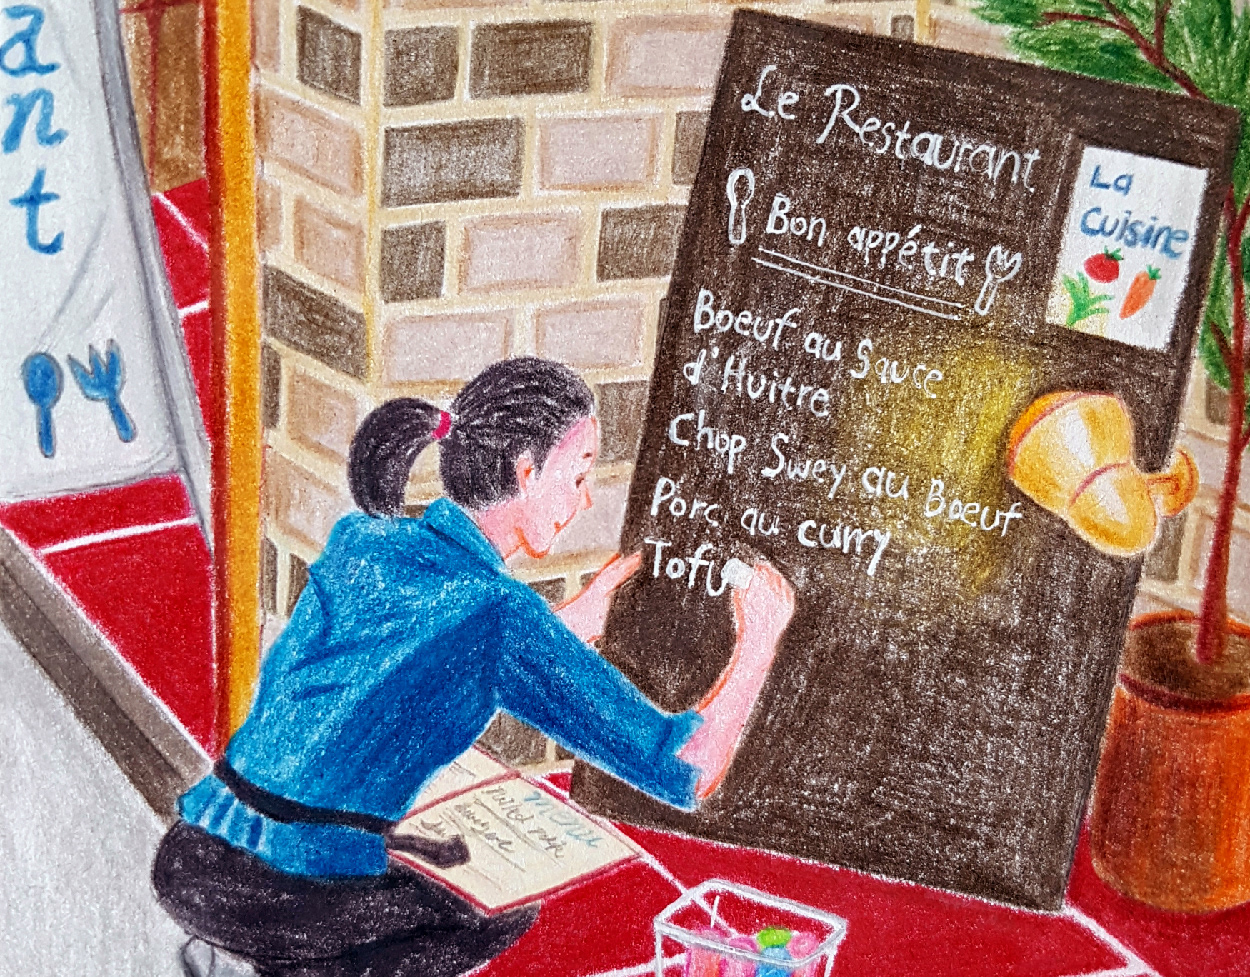 a
n
t
Le Restaurant
La
Cuisine
Bon appétit
Boeuf au Sauce
d'Huitre
Chop Swey au Boeuf
Porc au curry
Tofu
Menu